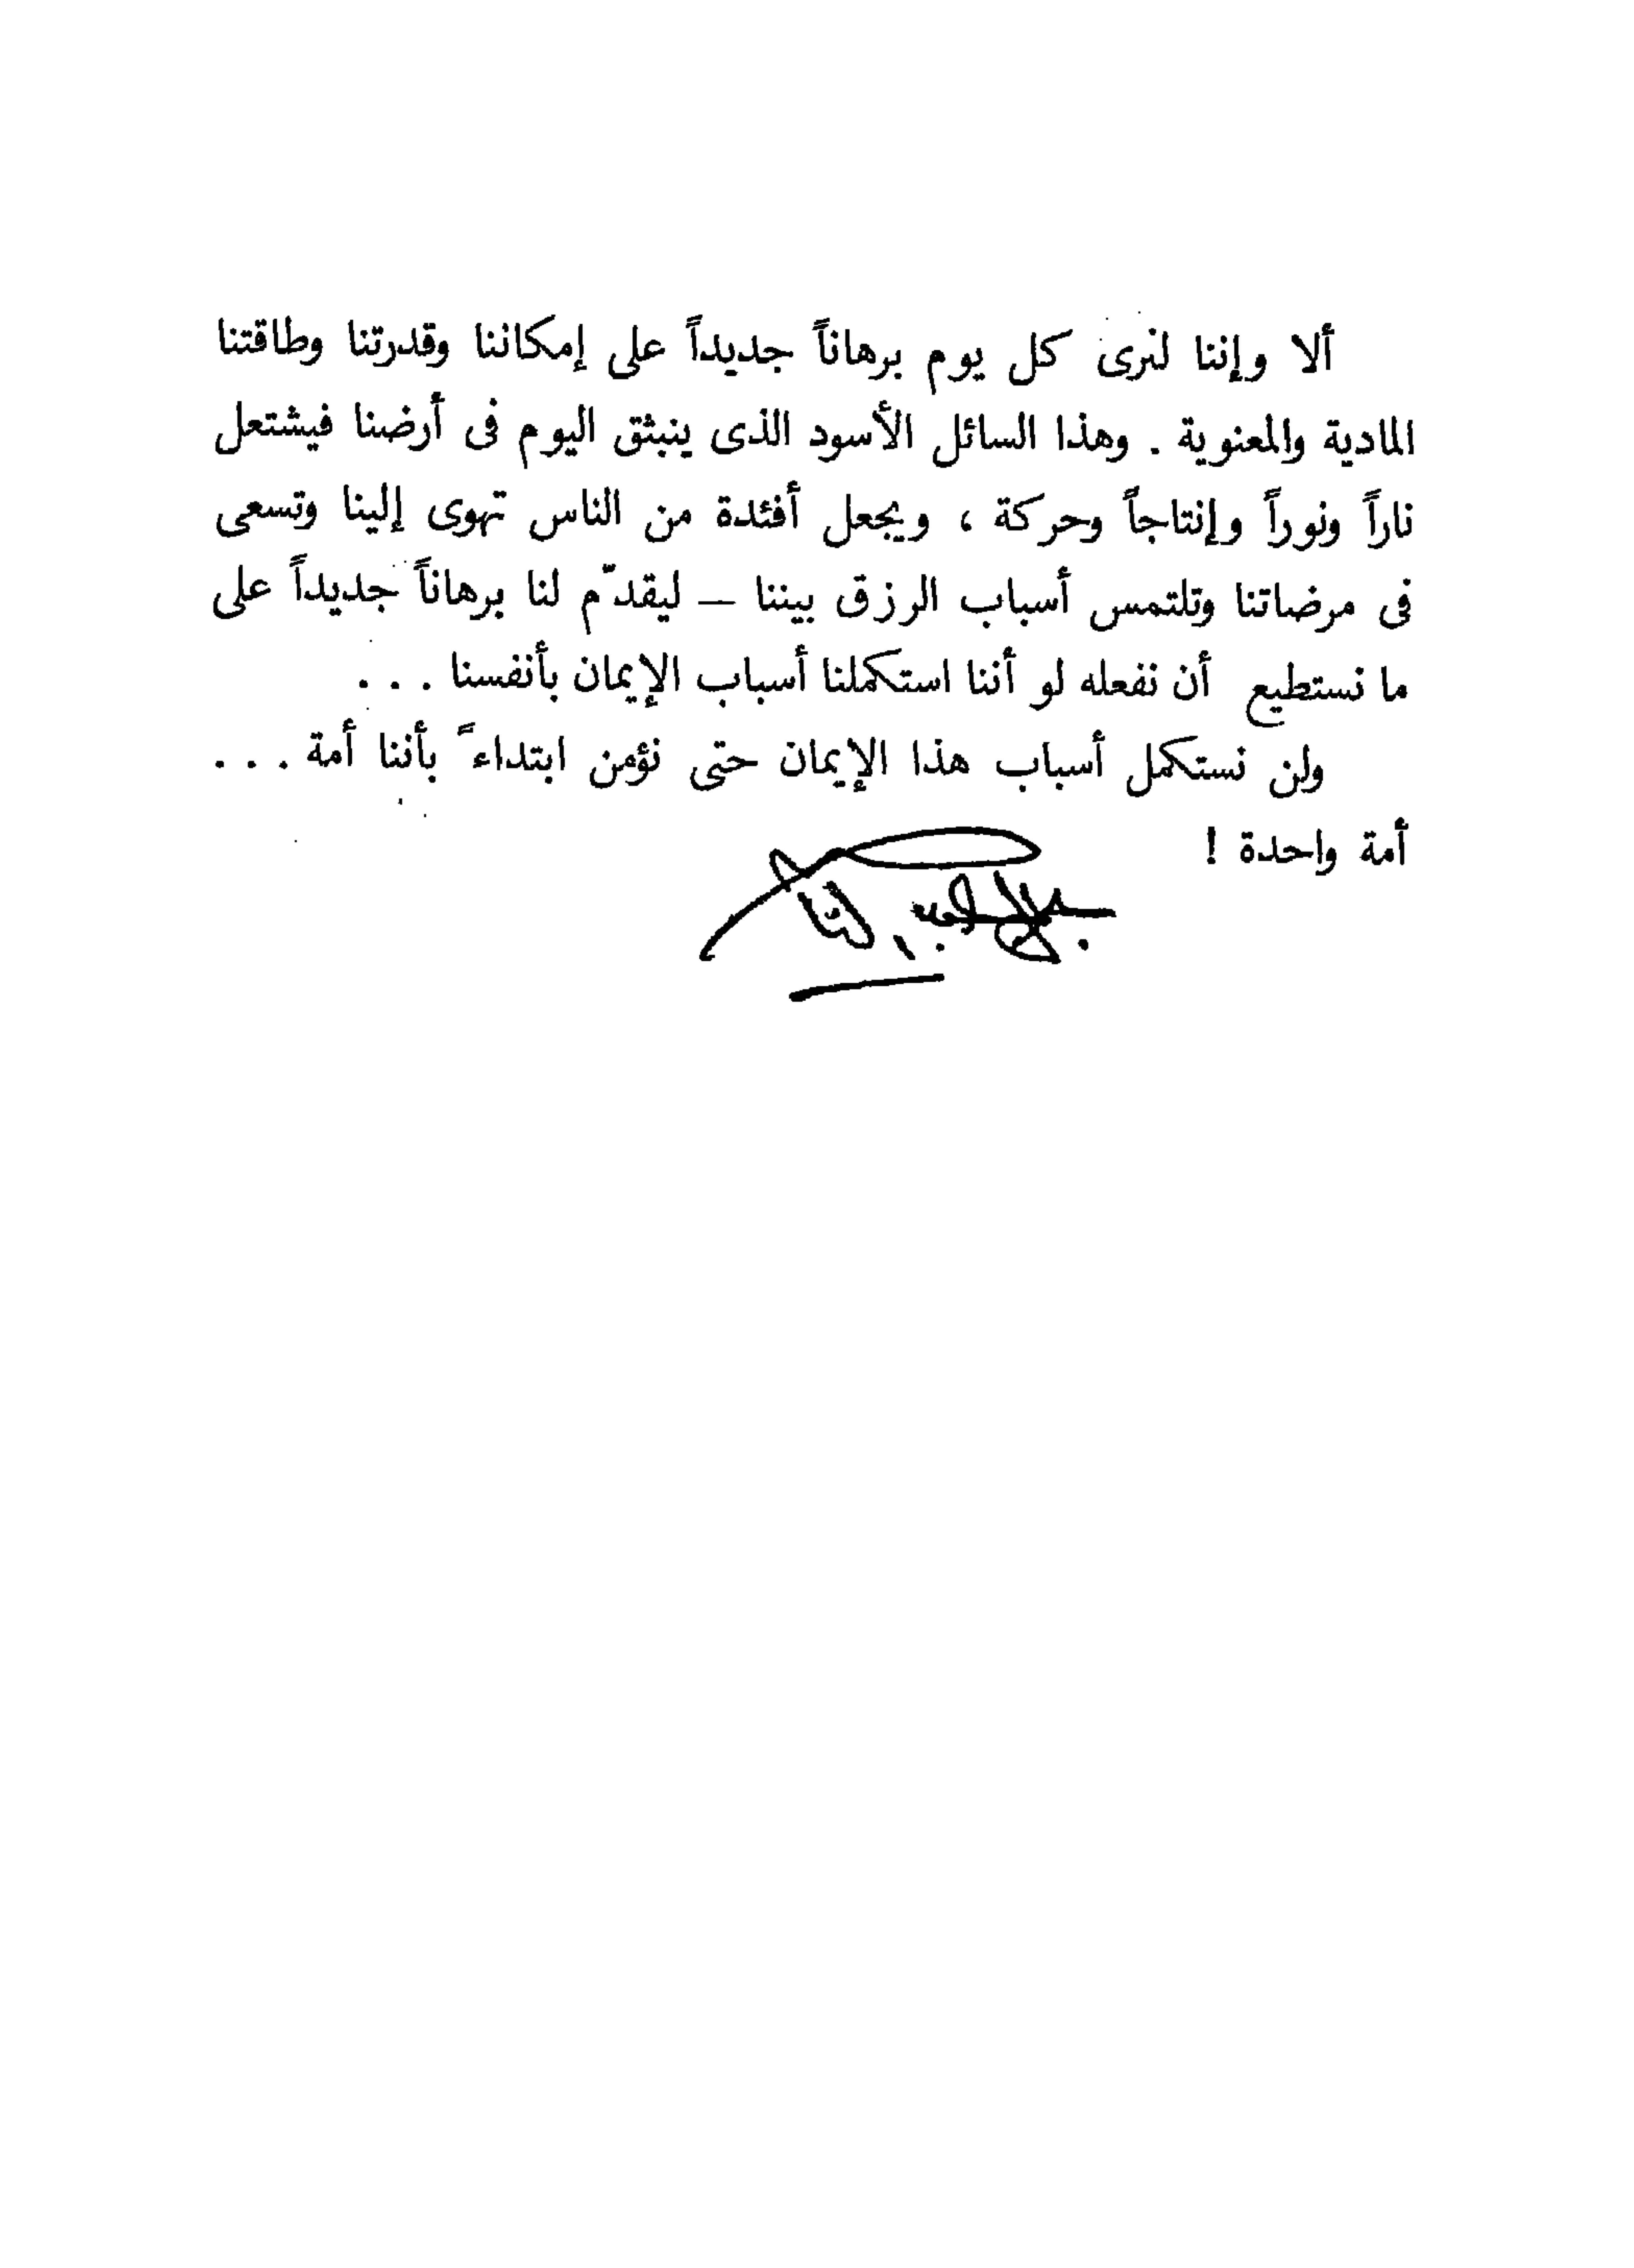 ألا وإننا لنرى كل يوم برهاناً جديداً على إمكاننا وقدرتنا وطاقتنا
المادية والمعنوية . وهذا السائل الأسود الذى ينبثق اليوم فى أرضنا فيشتعل
ناراً ونوراً وإنتاجاً وحركة ، ويجعل أفئدة من الناس تهوى إلينا وتسعى
فى مرضاتنا وتلتمس أسباب الرزق بيننا — ليقدّم لنا برهاناً جديداً على
ما نستطيع أن نفعله لو أننا استكملنا أسباب الإيمان بأنفسنا . . .
ولن نستكمل أسباب هذا الإيمان حتى نؤمن ابتداءً بأننا أمة . . .
أمة واحدة !